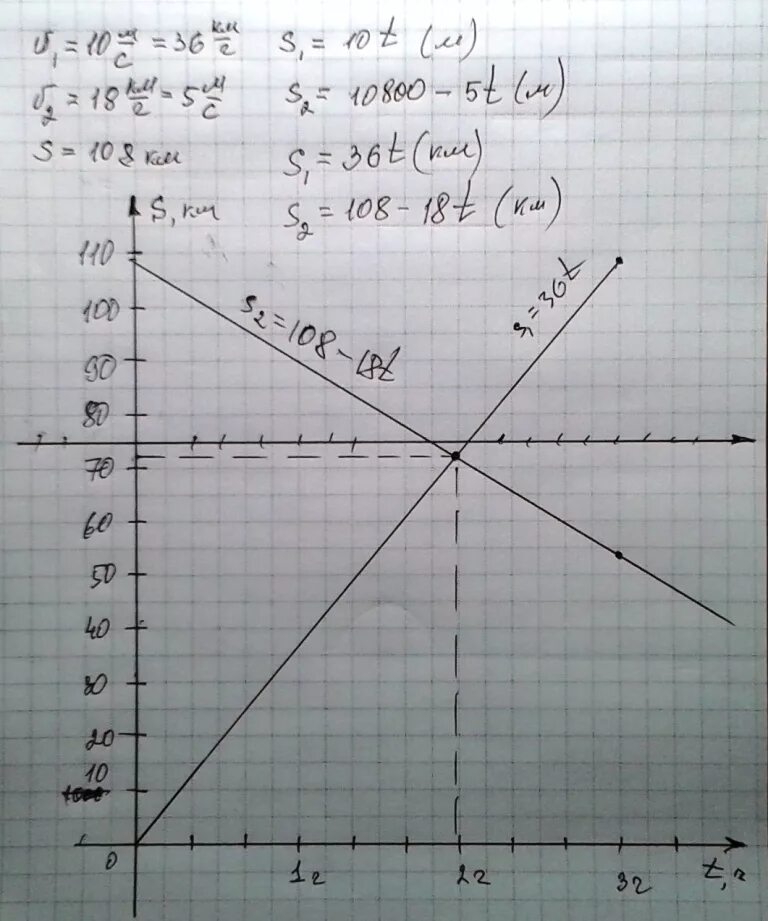 υ₁ = 10 м/с = 36 км/г S₁ = 10t (м)
υ₂ = 18 км/г = 5 м/с S₂ = 10800 - 5t (м)
S = 108 км S₁ = 36t (км)
S₂ = 108 - 18t (км)
S, км
110
100
90
80
70
60
50
40
30
20
10
0
S₂ = 108 - 18t
S₁ = 36t
1г 2г 3г t, г